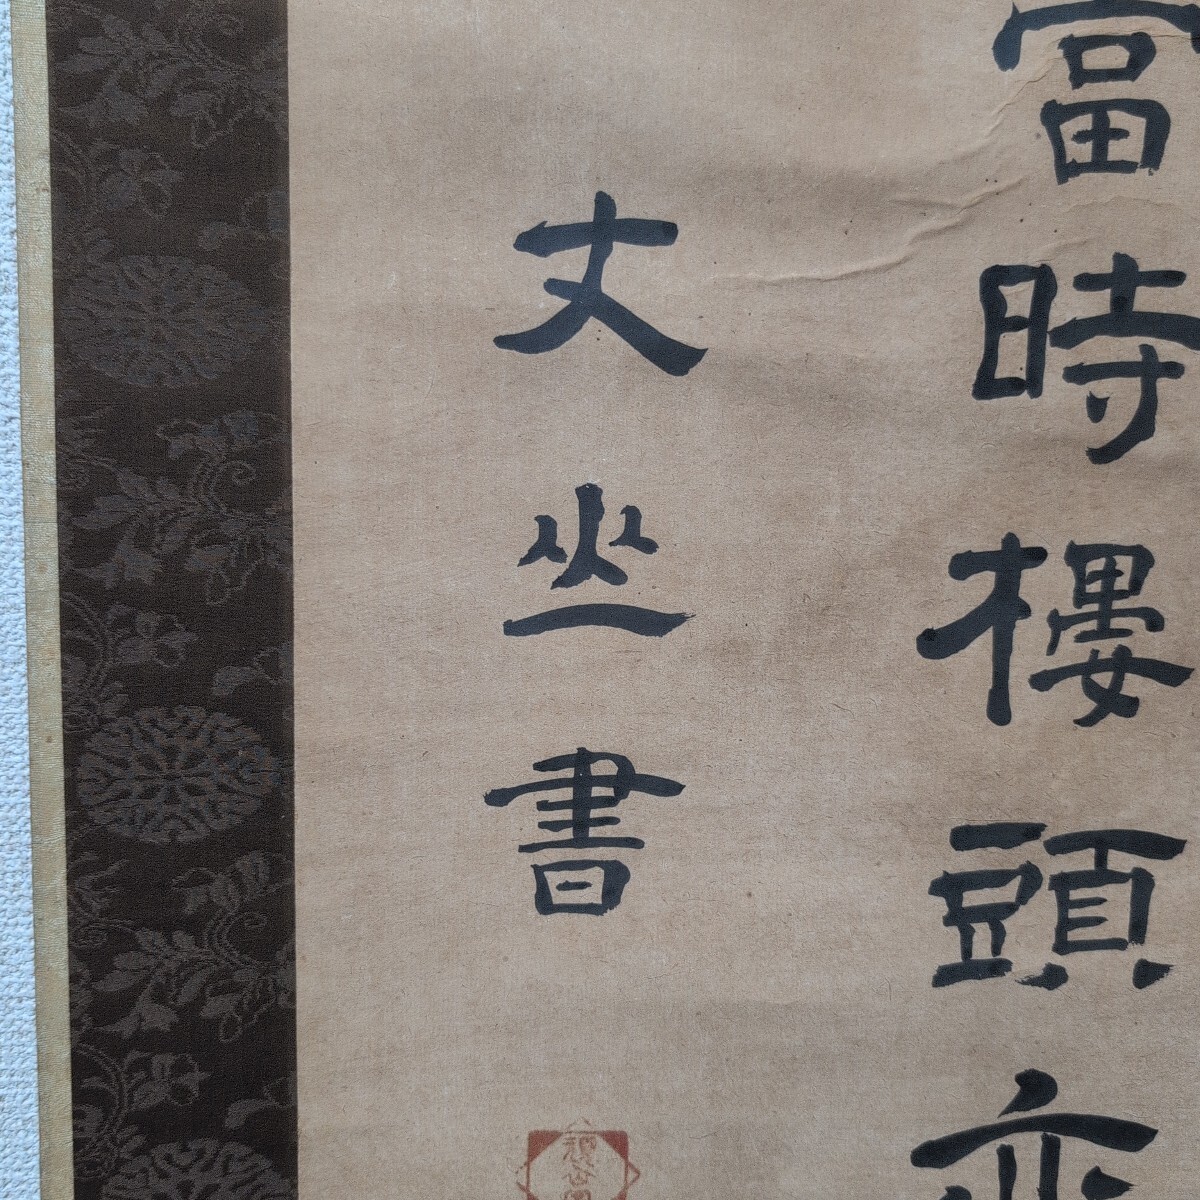 當時樓頭亦
丈山書